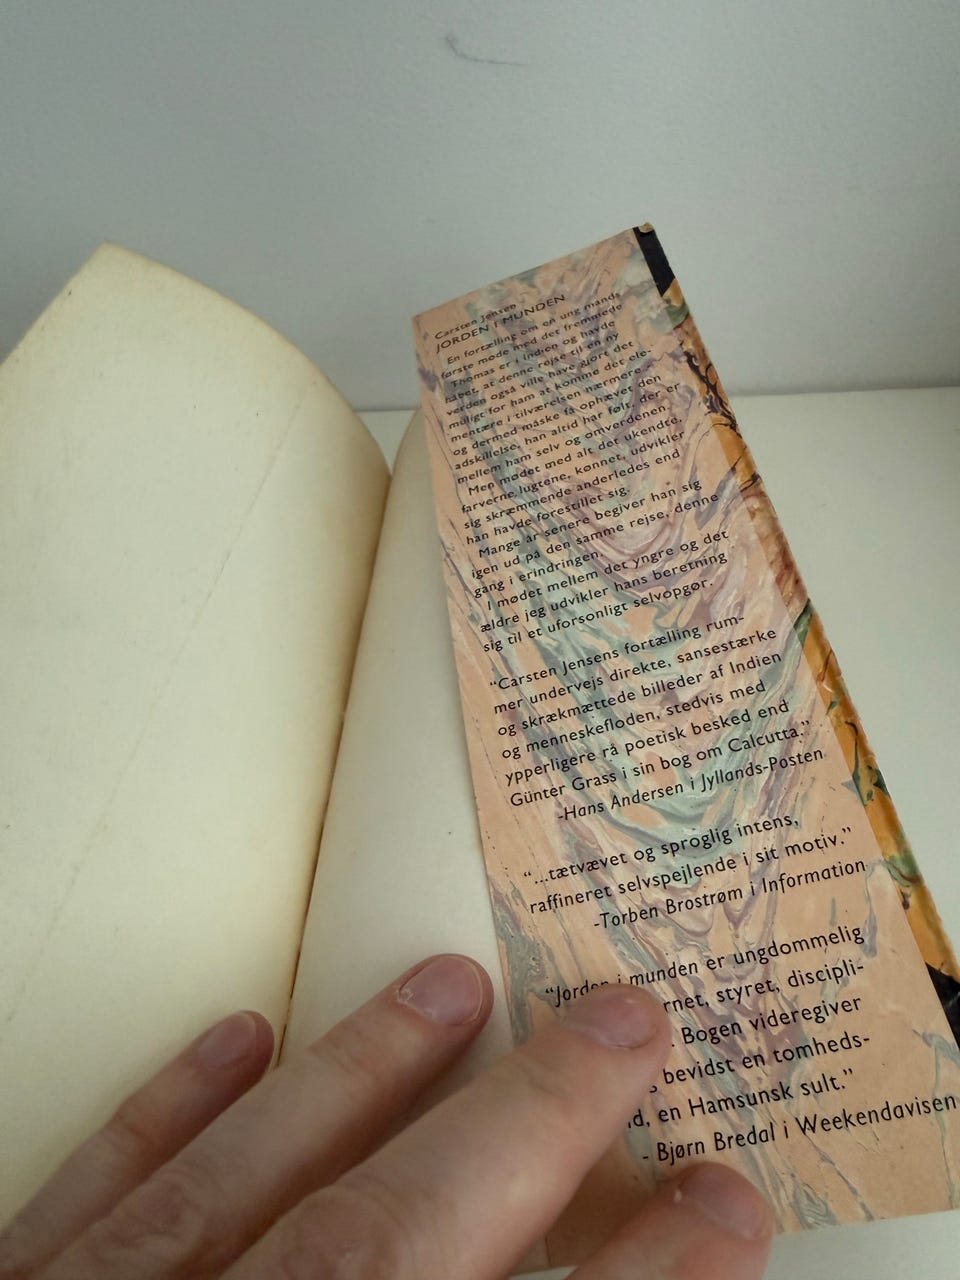 Carsten Jensen
JORDEN I MUNDEN
En fortælling om en ung mands
første møde med det fremmede
Thomas er i Indien og havde
håbet, at denne rejse til en ny
verden også ville have gjort det
muligt for ham at komme det ele-
mentære i tilværelsen nærmere
og dermed måske få ophævet den
adskillelse, han altid har følt, der er
mellem ham selv og omverdenen.
Men mødet med alt det ukendte,
farverne, lugtene, kønnet, udvikler
sig skræmmende anderledes end
han havde forestillet sig.
Mange år senere begiver han sig
igen ud på den samme rejse, denne
gang i erindringen.
I mødet mellem det yngre og det
ældre jeg udvikler hans beretning
sig til et uforsonligt selvopgør.
“Carsten Jensens fortælling rum-
mer undervejs direkte, sansestærke
og skrækmættede billeder af Indien
og menneskefloden, stedvis med
ypperligere rå poetisk besked end
Günter Grass i sin bog om Calcutta.”
-Hans Andersen i Jyllands-Posten
“...tætvævet og sproglig intens,
raffineret selvspejlende i sit motiv.”
-Torben Brostrøm i Information
“Jorden i munden er ungdommelig
rnet, styret, discipli-
. Bogen videregiver
bevidst en tomheds-
en Hamsunsk sult.”
- Bjørn Bredal i Weekendavisen